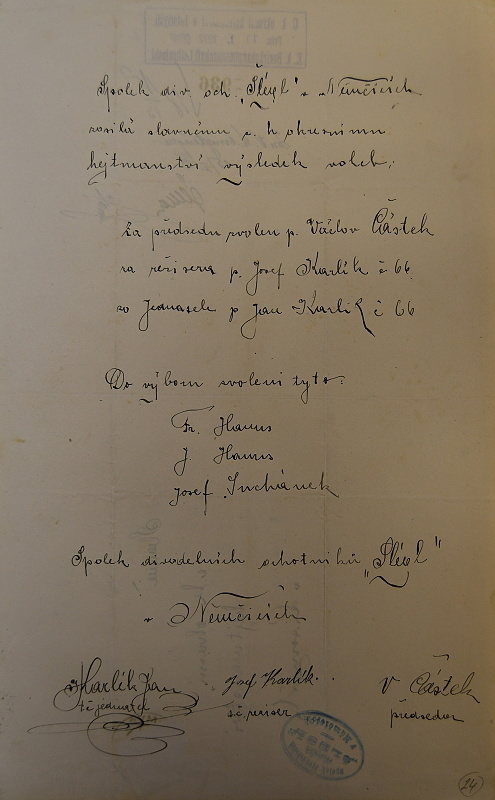 Spolek div. och. "Šlégl" v Němčicích
zasílá slavnému c. k okresnímu
hejtmanství výsledek voleb:
Za předsedu zvolen p. Václav Částek
za režisera p. Josef Karlík č 66.
za Jednatele p Jan Karlík č 66
Do výboru zvoleni tyto:
Fr. Hanus
J. Hanus
Josef Suchánek
Spolek divadelních ochotníků
"Šlégl"
v Němčicích
Karlík Jan
Josef Karlík.
V Částek
t č jednatel
t. č. režiser
předseda
24